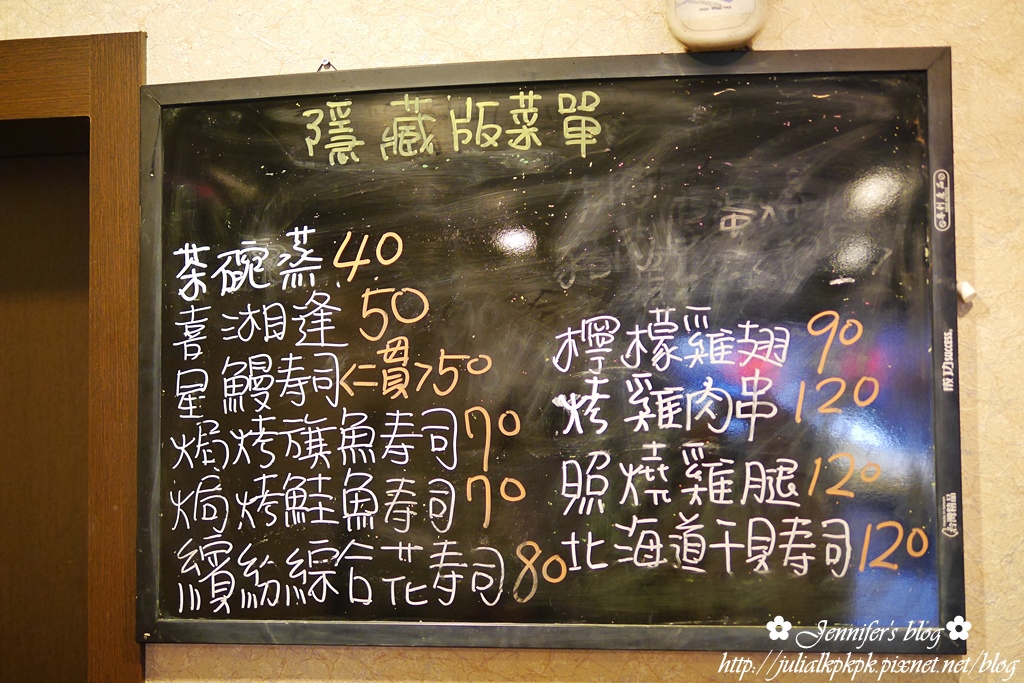 隱藏版菜單
茶碗蒸 40
喜湖逢 50
星鰻寿司<二貫>50
焗烤旗魚寿司 70
焗烤鮭魚寿司 70
繽紛綜合花寿司 80
檸檬雞翅 90
烤雞肉串 120
照燒雞腿 120
北海道干貝寿司 120
成功 success.
台灣精品
Jennifer's blog
http://julialkpkpk.pixnet.net/blog